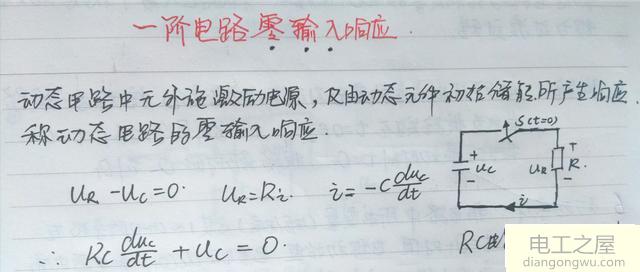 一阶电路零输入响应.
动态电路中无外施激励电源,仅由动态元件初始储能所产生响应.
称动态电路的零输入响应.
S(t=0)
+ uc - uR + R -
i
uR - uc = 0. uR = Ri. i = -C duc/dt
∴ RC duc/dt + uc = 0.
RC电
电工之屋
diangongwu.com